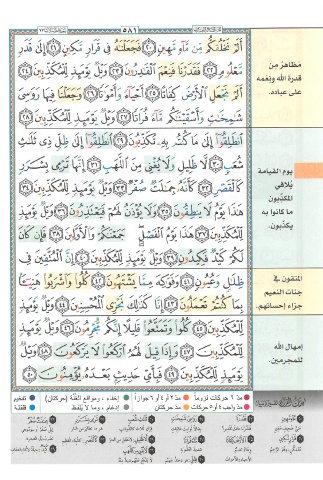 ٥٨١
أَلَمْ نَخْلُقكُّم مِّن مَّآءٍ مَّهِينٍ ٢٠ فَجَعَلْنَٰهُ فِى قَرَارٍ مَّكِينٍ ٢١ إِلَىٰ قَدَرٍ
مَّعْلُومٍ ٢٢ فَقَدَرْنَا فَنِعْمَ ٱلْقَٰدِرُونَ ٢٣ وَيْلٌ يَوْمَئِذٍ لِّلْمُكَذِّبِينَ ٢٤
أَلَمْ نَجْعَلِ ٱلْأَرْضَ كِفَاتًا ٢٥ أَحْيَآءً وَأَمْوَٰتًا ٢٦ وَجَعَلْنَا فِيهَا رَوَٰسِىَ
شَٰمِخَٰتٍ وَأَسْقَيْنَٰكُم مَّآءً فُرَاتًا ٢٧ وَيْلٌ يَوْمَئِذٍ لِّلْمُكَذِّبِينَ ٢٨
ٱنطَلِقُوٓا۟ إِلَىٰ مَا كُنتُم بِهِۦ تُكَذِّبُونَ ٢٩ ٱنطَلِقُوٓا۟ إِلَىٰ ظِلٍّ ذِى ثَلَٰثِ
شُعَبٍ ٣٠ لَّا ظَلِيلٍ وَلَا يُغْنِى مِنَ ٱللَّهَبِ ٣١ إِنَّهَا تَرْمِى بِشَرَرٍ
كَٱلْقَصْرِ ٣٢ كَأَنَّهُۥ جِمَٰلَتٌ صُفْرٌ ٣٣ وَيْلٌ يَوْمَئِذٍ لِّلْمُكَذِّبِينَ ٣٤
هَٰذَا يَوْمُ لَا يَنطِقُونَ ٣٥ وَلَا يُؤْذَنُ لَهُمْ فَيَعْتَذِرُونَ ٣٦ وَيْلٌ يَوْمَئِذٍ
لِّلْمُكَذِّبِينَ ٣٧ هَٰذَا يَوْمُ ٱلْفَصْلِ جَمَعْنَٰكُمْ وَٱلْأَوَّلِينَ ٣٨ فَإِن كَانَ
لَكُمْ كَيْدٌ فَكِيدُونِ ٣٩ وَيْلٌ يَوْمَئِذٍ لِّلْمُكَذِّبِينَ ٤٠ إِنَّ ٱلْمُتَّقِينَ فِى
ظِلَٰلٍ وَعُيُونٍ ٤١ وَفَوَٰكِهَ مِمَّا يَشْتَهُونَ ٤٢ كُلُوا۟ وَٱشْرَبُوا۟ هَنِيٓـًٔۢا
بِمَا كُنتُمْ تَعْمَلُونَ ٤٣ إِنَّا كَذَٰلِكَ نَجْزِى ٱلْمُحْسِنِينَ ٤٤ وَيْلٌ يَوْمَئِذٍ
لِّلْمُكَذِّبِينَ ٤٥ كُلُوا۟ وَتَمَتَّعُوا۟ قَلِيلًا إِنَّكُم مُّجْرِمُونَ ٤٦ وَيْلٌ يَوْمَئِذٍ
لِّلْمُكَذِّبِينَ ٤٧ وَإِذَا قِيلَ لَهُمُ ٱرْكَعُوا۟ لَا يَرْكَعُونَ ٤٨ وَيْلٌ يَوْمَئِذٍ
لِّلْمُكَذِّبِينَ ٤٩ فَبِأَىِّ حَدِيثٍۭ بَعْدَهُۥ يُؤْمِنُونَ ٥٠
مظاهر من
قدرة الله ونعمه
على عباده.
يوم القيامة
يُلاقي
المكذبون
ما كانوا به
يكذّبون.
المتقون في
جنات النعيم
جزاء إحسانهم.
إمهال الله
للمجرمين.
مدّ ٦ حركات لزوماً
مدّ ٢ أو ٤ أو ٦ جوازاً
إخفاء، ومواقع الغنّة (حركتان)
تفخيم
مدّ واجب ٤ أو ٥ حركات
مدّ حركتان
إدغام، وما لا يُلفظ
قلقلة